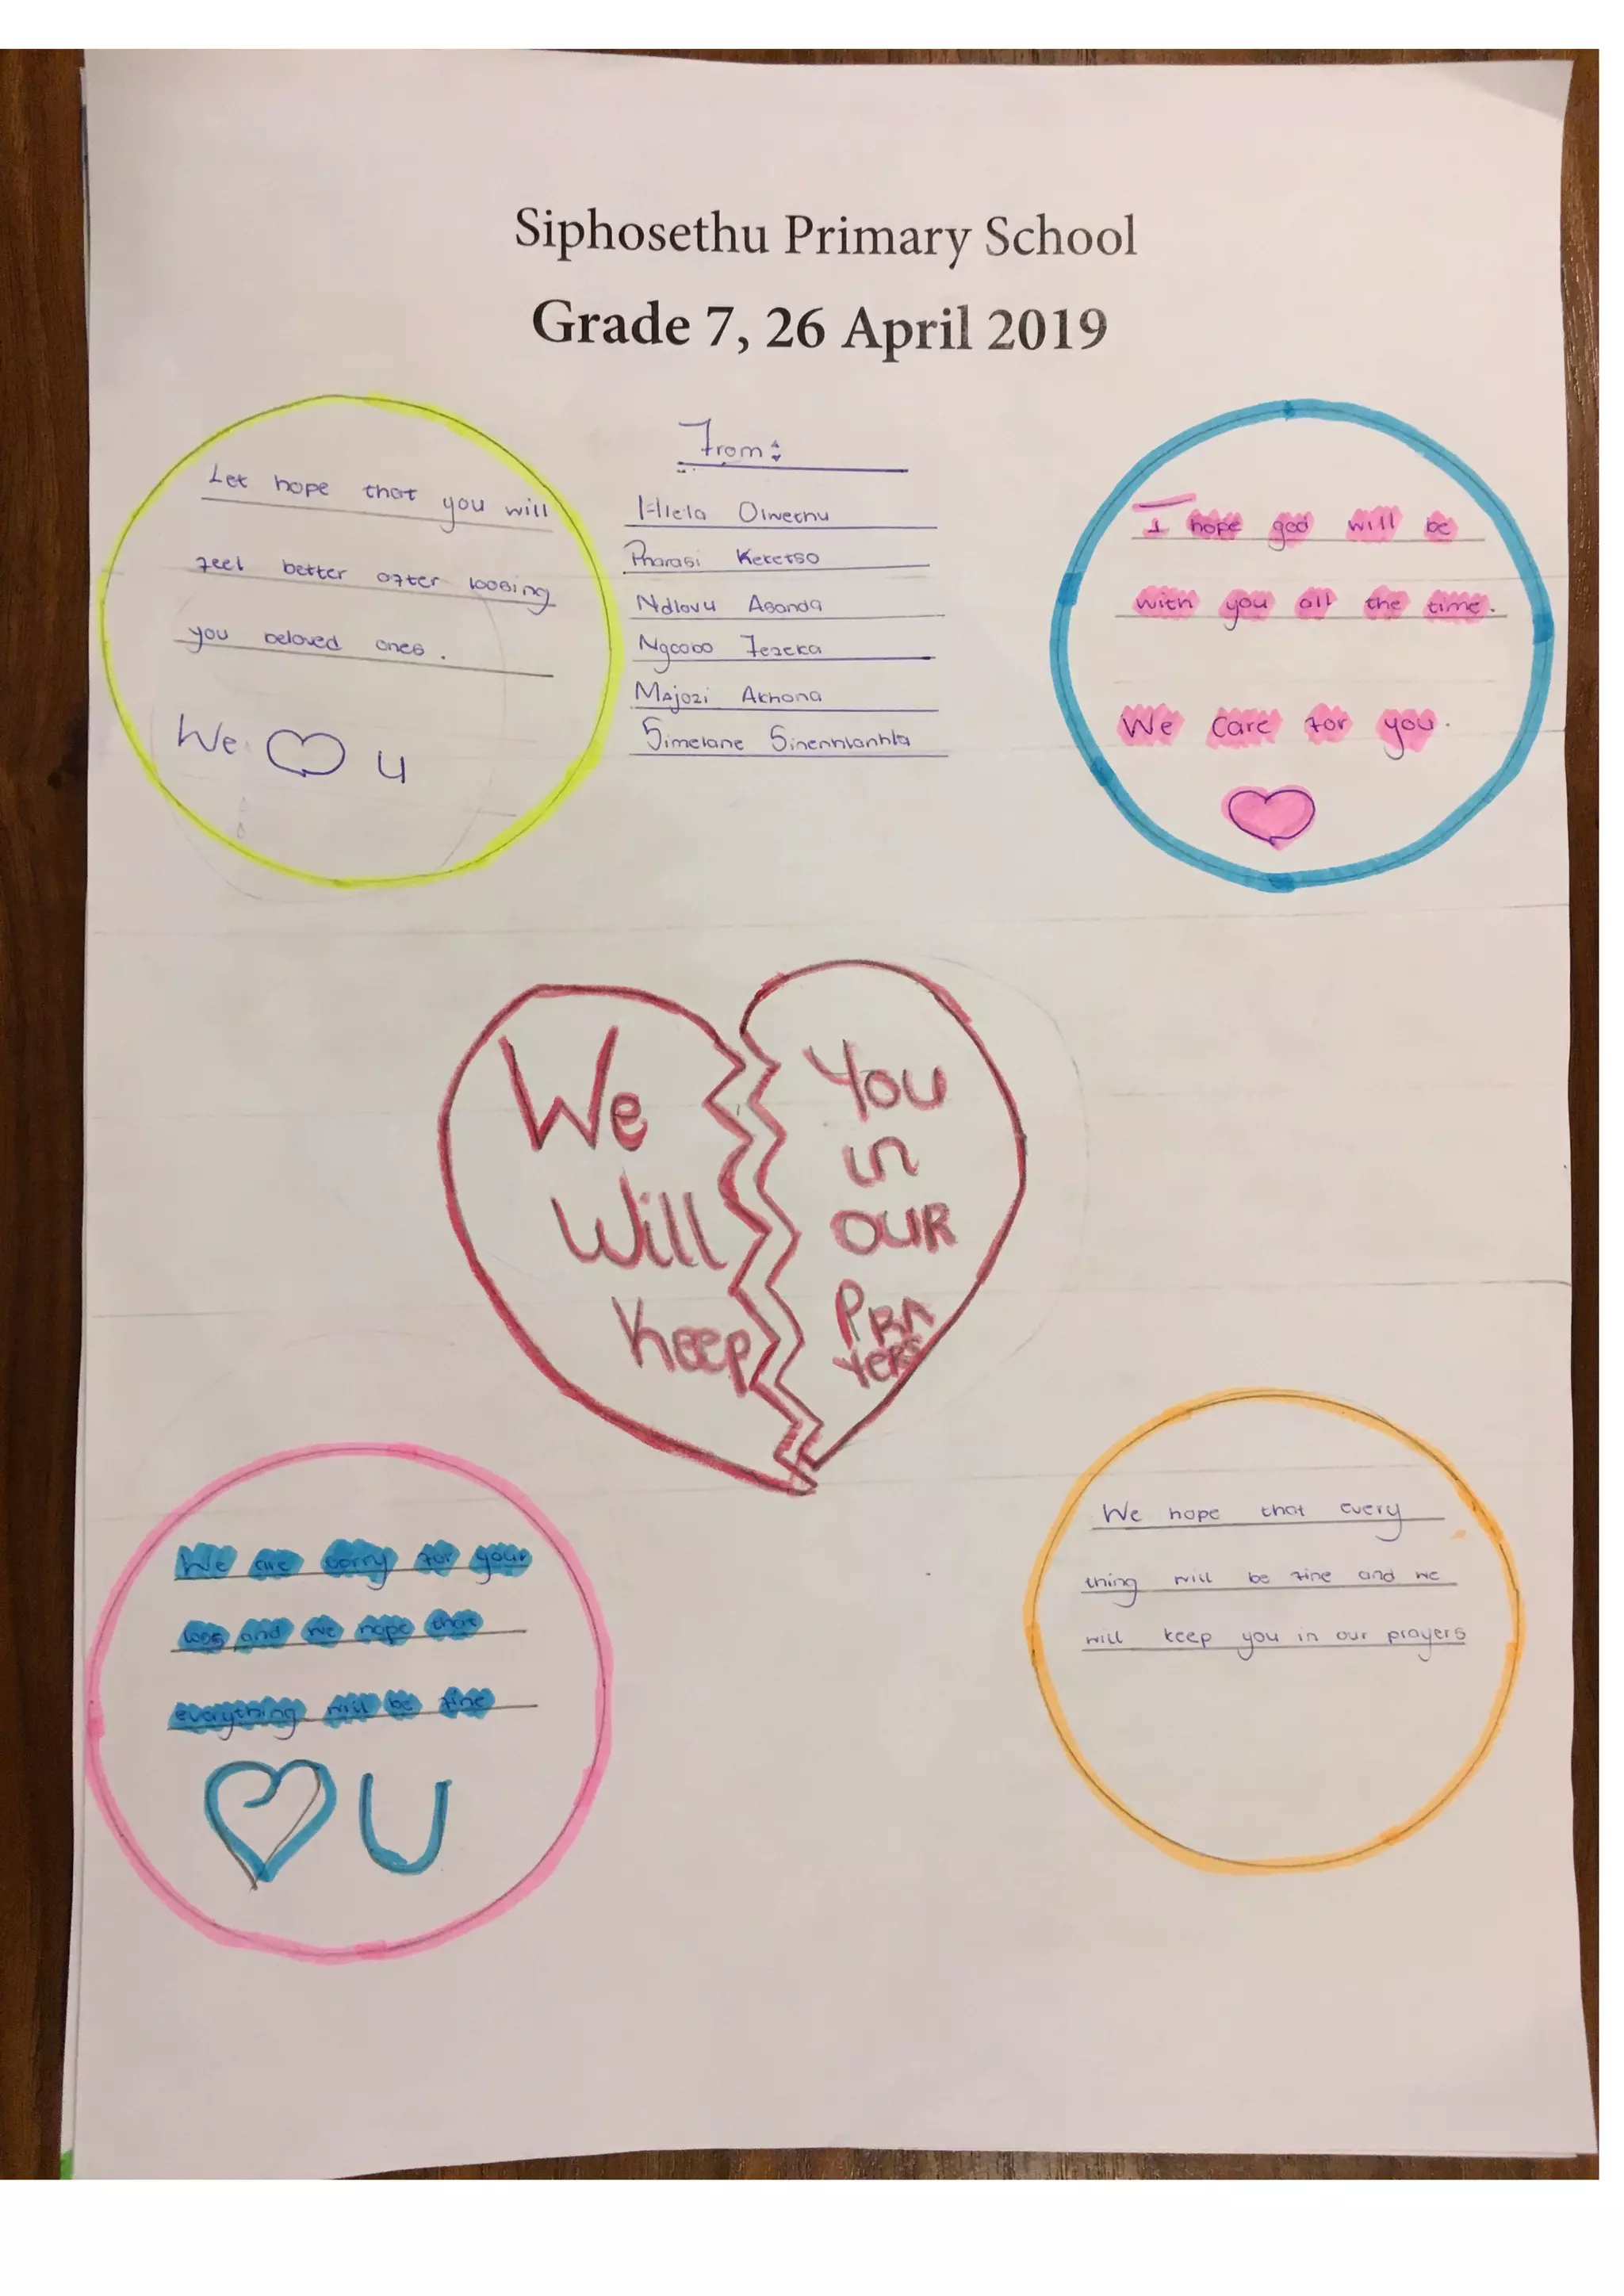 Siphosethu Primary School
Grade 7, 26 April 2019
Let hope that you will
feel better after loosing
you beloved ones.
We u
From:
Hlela Olwethu
Pharasi Keketso
Ndlovu Asanda
Ngcobo Fezeka
Majozi Akhona
Simelane Sinenhlanhla
I hope god will be
with you all the time.
We care for you.
We
Will
Keep
You
in
OUR
PRA
YERS
We are sorry for your
loss and we hope that
everything will be fine
U
We hope that every
thing will be fine and we
will keep you in our prayers